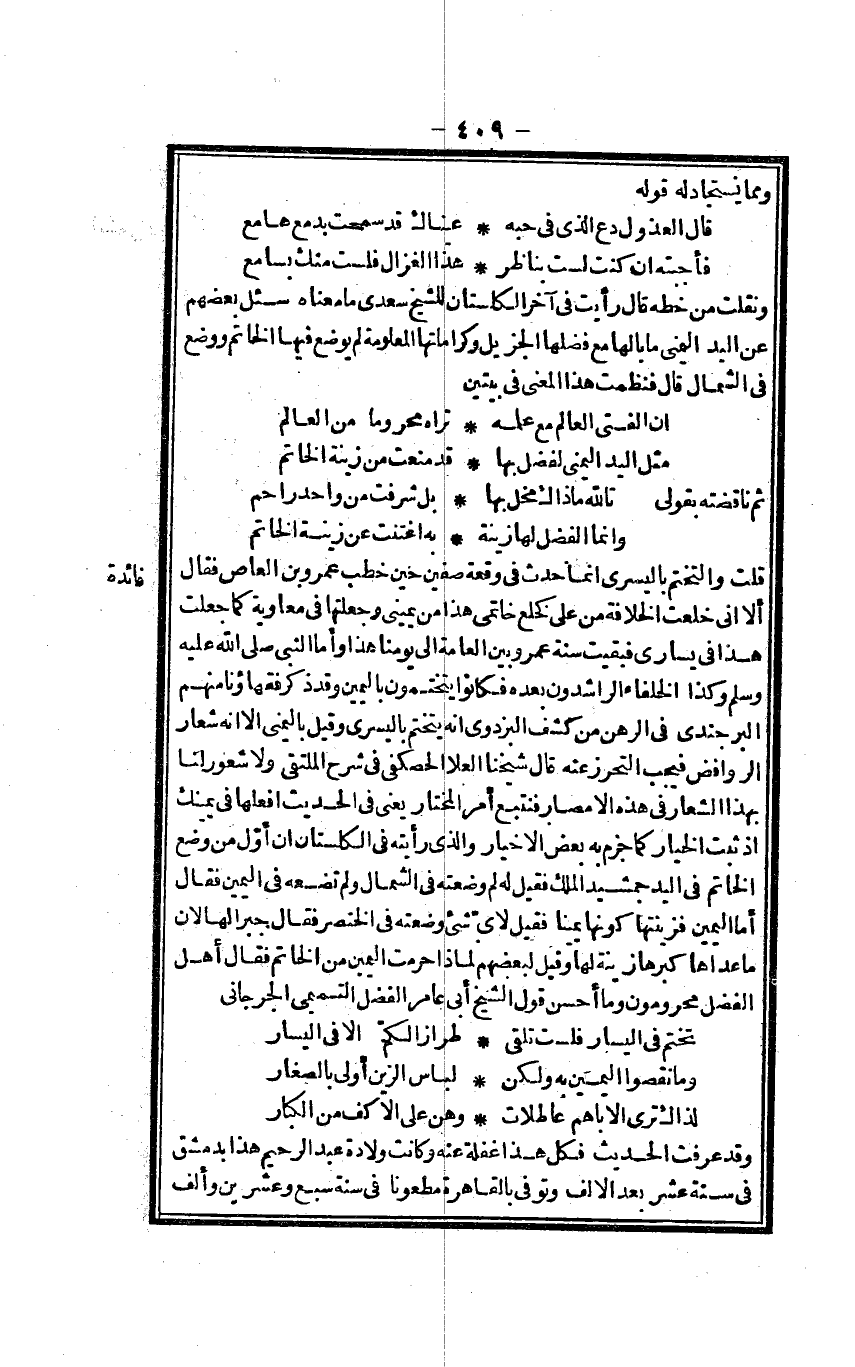 - ٤٠٩ -
ومما يستجاد له قوله
قال العذول دع الذى فى حبه * عيناك قد سمحت بدمع هامع
فأجبته ان كنت لست بناظر * هذا الغزال فلست منك بسامع
ونقلت من خطه قال رأيت فى آخر الكلستان للشيخ سعدى ما معناه سئل بعضهم
عن اليد اليمنى ما بالها مع فضلها الجزيل وكراماتها المعلومة لم يوضع فيها الخاتم ووضع
فى الشمال قال فنظمت هذا المعنى فى بيتين
ان الفتى العالم مع علمه * تراه محروما من العالم
مثل اليد اليمنى لفضل بها * قد منعت من زينة الخاتم
ثم ناقضته بقولى تالله ماذاك لبخل بها * بل شرفت من واحد راحم
وانما الفضل لها زينة * به اغتنت عن زينة الخاتم
قلت والتختم باليسرى انما حدث فى وقعة صفين حين خطب عمرو بن العاص فقال
فائدة
ألا انى خلعت الخلافة من على كخلع خاتمى هذا من يمينى وجعلتها فى معاوية كما جعلت
هذا فى يسارى فبقيت سنة عمرو بين العامة الى يومنا هذا وأما النبى صلى الله عليه
وسلم وكذا الخلفاء الراشدون بعده فكانوا يتختمون باليمين وقد ذكر فقهاؤنا منهم
البرجندى فى الرهن من كشف البزدوى انه يتختم باليسرى وقيل باليمنى الا انه شعار
الروافض فيجب التحرز عنه قال شيخنا العلا الحصكفى فى شرح الملتقى ولا شعور لنا
بهذا الشعار فى هذه الامصار فنتبع أمر المختار يعنى فى الحديث افعلها فى يمينك
اذ ثبت الخيار كما جزم به بعض الاخيار والذى رأيته فى الكلستان ان أول من وضع
الخاتم فى اليد جمشيد الملك فقيل له لم وضعته فى الشمال ولم تضعه فى اليمين فقال
أما اليمين فزينتها كونها يمينا فقيل لاى شئ وضعته فى الخنصر فقال جبر الها لان
ما عداها كبرها زينة لها وقيل لبعضهم لماذا حرمت اليمين من الخاتم فقال أهل
الفضل محرومون وما أحسن قول الشيخ أبى عامر الفضل التميمى الجرجانى
تختم فى اليسار فلست تلقى * طراز الكم الا فى اليسار
وما نقصوا اليمين به ولكن * لباس الزين أولى بالصغار
لذاك ترى الاباهم عاطلات * وهن على الاكف من الكبار
وقد عرفت الحديث فكل هذا غفلة عنه وكانت ولادة عبد الرحيم هذا بدمشق
فى سنة عشر بعد الالف وتوفى بالقاهرة مطعونا فى سنة سبع وعشرين وألف